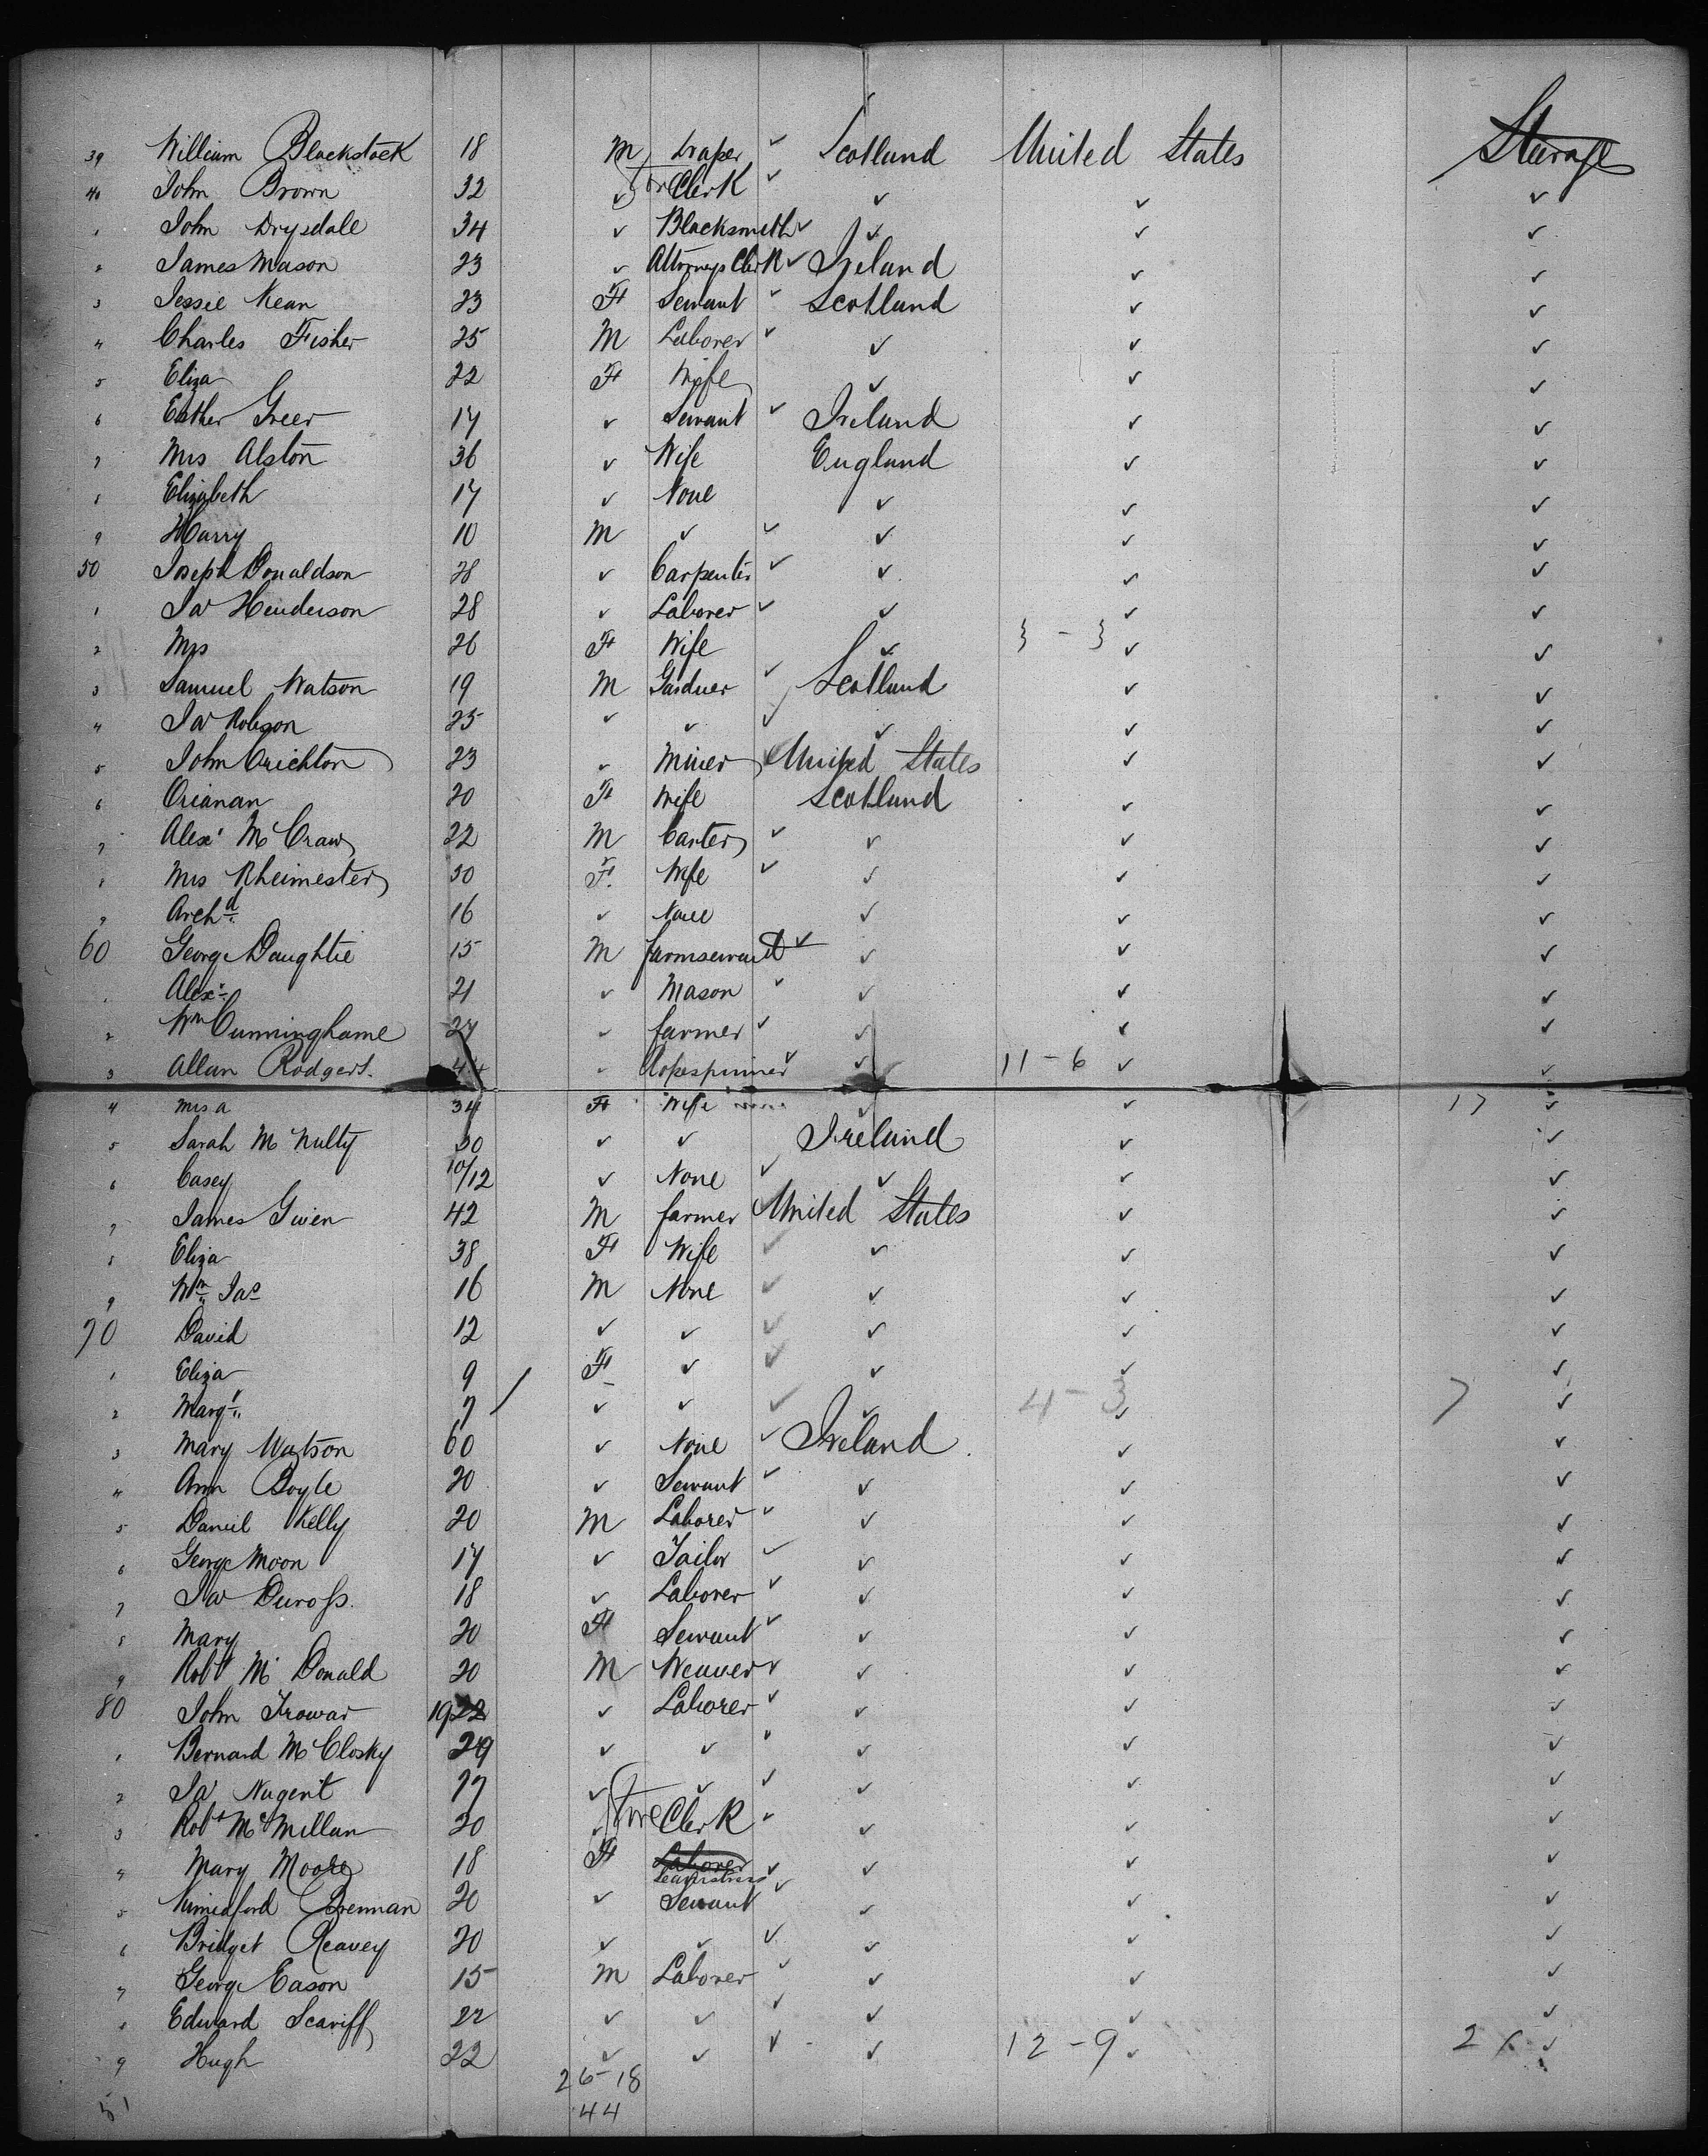 39 William Blackstock 18 M Draper ✓ Scotland United States Steerage
40 John Brown 32 ✓ Store Clerk ✓ ✓ ✓ ✓
1 John Drysdale 34 ✓ Blacksmith ✓ ✓ ✓ ✓
2 James Mason 23 ✓ Attorneys Clerk ✓ Ireland ✓ ✓
3 Jessie Kean 23 F Servant ✓ Scotland ✓ ✓
4 Charles Fisher 25 M Laborer ✓ ✓ ✓ ✓
5 Eliza 22 F Wife ✓ ✓ ✓
6 Esther Greer 17 ✓ Servant ✓ Ireland ✓ ✓
7 Mrs Alston 36 ✓ Wife England ✓ ✓
8 Elizabeth 17 ✓ None ✓ ✓ ✓
9 Harry 10 M ✓ ✓ ✓ ✓ ✓
50 Joseph Donaldson 28 ✓ Carpenter ✓ ✓ ✓ ✓
1 Jas Henderson 28 ✓ Laborer ✓ ✓ ✓ ✓
2 Mrs 26 F Wife ✓ 3 - 3 ✓ ✓
3 Samuel Watson 19 M Gardner ✓ Scotland ✓ ✓
4 Jas Robson 25 ✓ ✓ ✓ ✓ ✓ ✓
5 John Crichton 23 ✓ Miner ✓ United States ✓ ✓
6 Orianan 20 F Wife Scotland ✓ ✓
7 Alexr McCraw 22 M Carter ✓ ✓ ✓ ✓
8 Mrs Rheimester 50 F. Wife ✓ ✓ ✓ ✓
9 Archd 16 ✓ None ✓ ✓ ✓
60 George Daughtie 15 M farmservant ✓ ✓ ✓ ✓
1 Alexr 21 ✓ Mason ✓ ✓ ✓ ✓
2 Wm Cunninghame 27 ✓ farmer ✓ ✓ ✓ ✓
3 Allan Rodgers. 44 ✓ Ropespinner ✓ ✓ 11 - 6 ✓ ✓
4 Mrs a 34 F Wife ✓ ✓ 17 ✓
5 Sarah McNulty 30 ✓ ✓ Ireland ✓ ✓
6 Casey 10/12 ✓ None ✓ ✓ ✓ ✓
7 James Gwen 42 M farmer United States ✓ ✓
8 Eliza 38 F Wife ✓ ✓ ✓ ✓
9 Wm Jas 16 M None ✓ ✓ ✓ ✓
70 David 12 ✓ ✓ ✓ ✓ ✓ ✓
1 Eliza 9 F ✓ ✓ ✓ ✓ ✓
2 Margt 7 / ✓ ✓ ✓ ✓ 4 - 3 ✓ 7 ✓
3 Mary Watson 60 ✓ None ✓ Ireland ✓ ✓
4 Ann Boyle 20 ✓ Servant ✓ ✓ ✓ ✓
5 Daniel Kelly 20 M Laborer ✓ ✓ ✓ ✓
6 George Moon 17 ✓ Tailor ✓ ✓ ✓ ✓
7 Jas Duross. 18 ✓ Laborer ✓ ✓ ✓ ✓
8 Mary 20 F Servant ✓ ✓ ✓ ✓
9 Robt McDonald 20 M Weaver ✓ ✓ ✓ ✓
80 John Trowar 19 22 ✓ Laborer ✓ ✓ ✓ ✓
1 Bernard McClosky 29 ✓ ✓ ✓ ✓ ✓ ✓
2 Jas Nugent 17 ✓ ✓ ✓ ✓ ✓ ✓
3 Robt McMillan 20 ✓ Store Clerk ✓ ✓ ✓ ✓
4 Mary Moore 18 F Laborer Seamstress ✓ ✓ ✓ ✓
5 Brennan 20 ✓ Servant ✓ ✓ ✓ ✓
6 Bridget Reavey 20 ✓ ✓ ✓ ✓ ✓ ✓
7 George Eason 15 M Laborer ✓ ✓ ✓ ✓
8 Edward Scariff 22 ✓ ✓ ✓ ✓ ✓ ✓
9 Hugh 22 ✓ ✓ ✓ ✓ 12 - 9 ✓ ✓
26-18
51 44